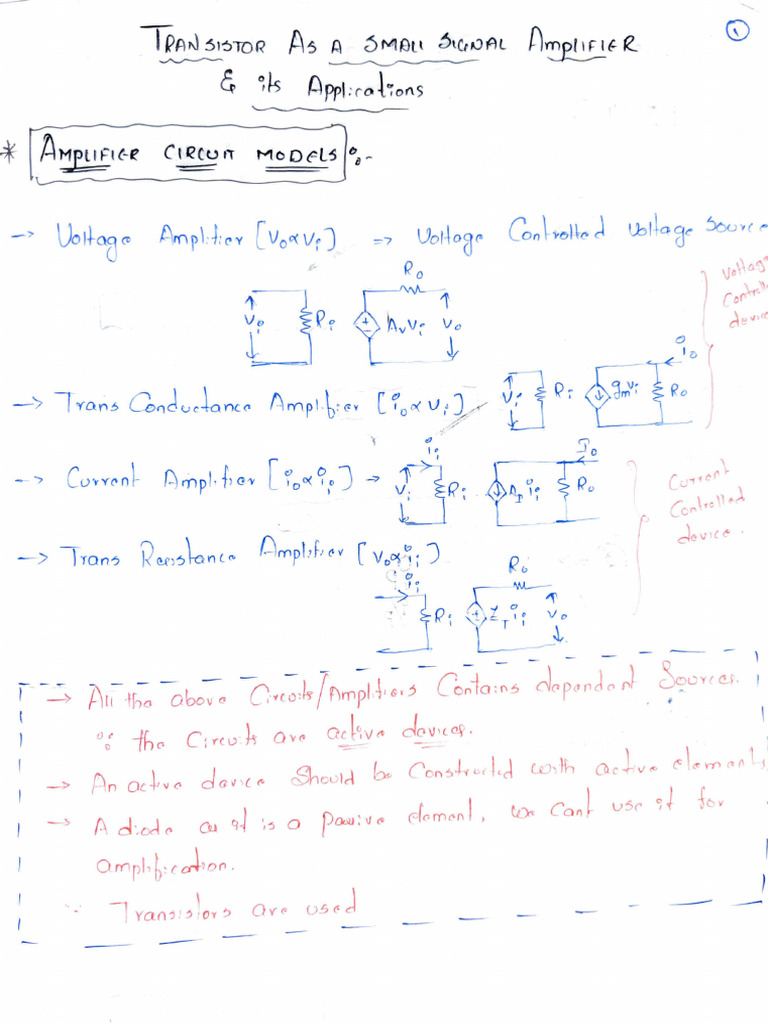 ①
TRANSISTOR AS A SMALL SIGNAL AMPLIFIER
& its Applications
* AMPLIFIER CIRCUIT MODELS :-
→ Voltage Amplifier [Vo ∝ Vi] => Voltage Controlled Voltage Source
Vi Ri Av Vi Ro Vo
Voltage
Controlled
device
→ Trans Conductance Amplifier [io ∝ Vi]
Vi Ri gmvi Ro io
→ Current Amplifier [io ∝ ii] →
ii Vi Ri AI ii Ro Io
Current
Controlled
device.
→ Trans Resistance Amplifier [Vo ∝ ii]
ii Ri ZT ii Ro Vo
→ All the above Circuits/Amplifiers Contains dependant Sources.
∴ the Circuits are active devices.
→ An active device Should be Constructed with active elements
→ A diode as it is a passive element, we cant use it for
amplification.
∵ Transistors are used